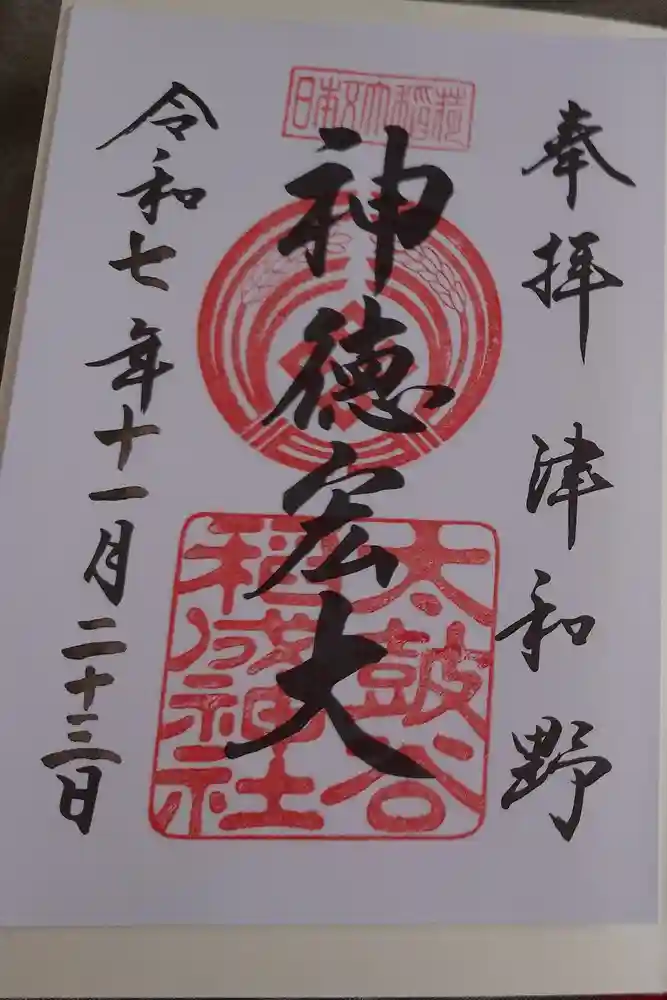 奉拝 津和野
日本五大稲荷
神徳宏大
太鼓谷
稲成神社
令和七年十一月二十三日